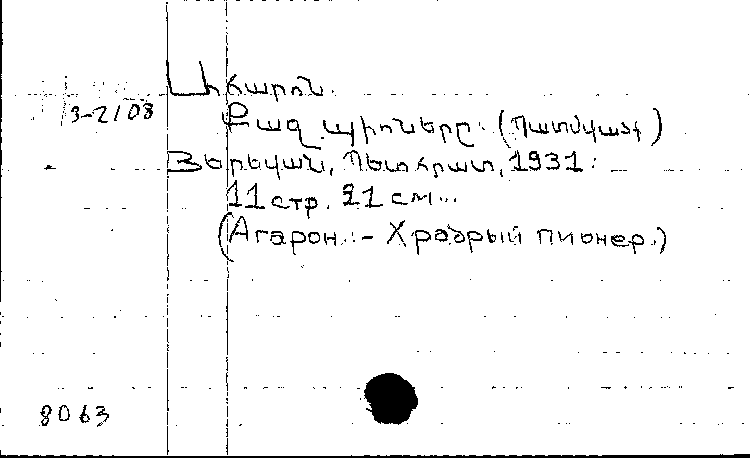 Ահարոն.
3-2/08
Քաջ պիոները. (Պատմվածք)
Յերեվան, Պետհրատ, 1931:
11 стр. 21 см..
(Агарон. - Храбрый пионер.)
8063